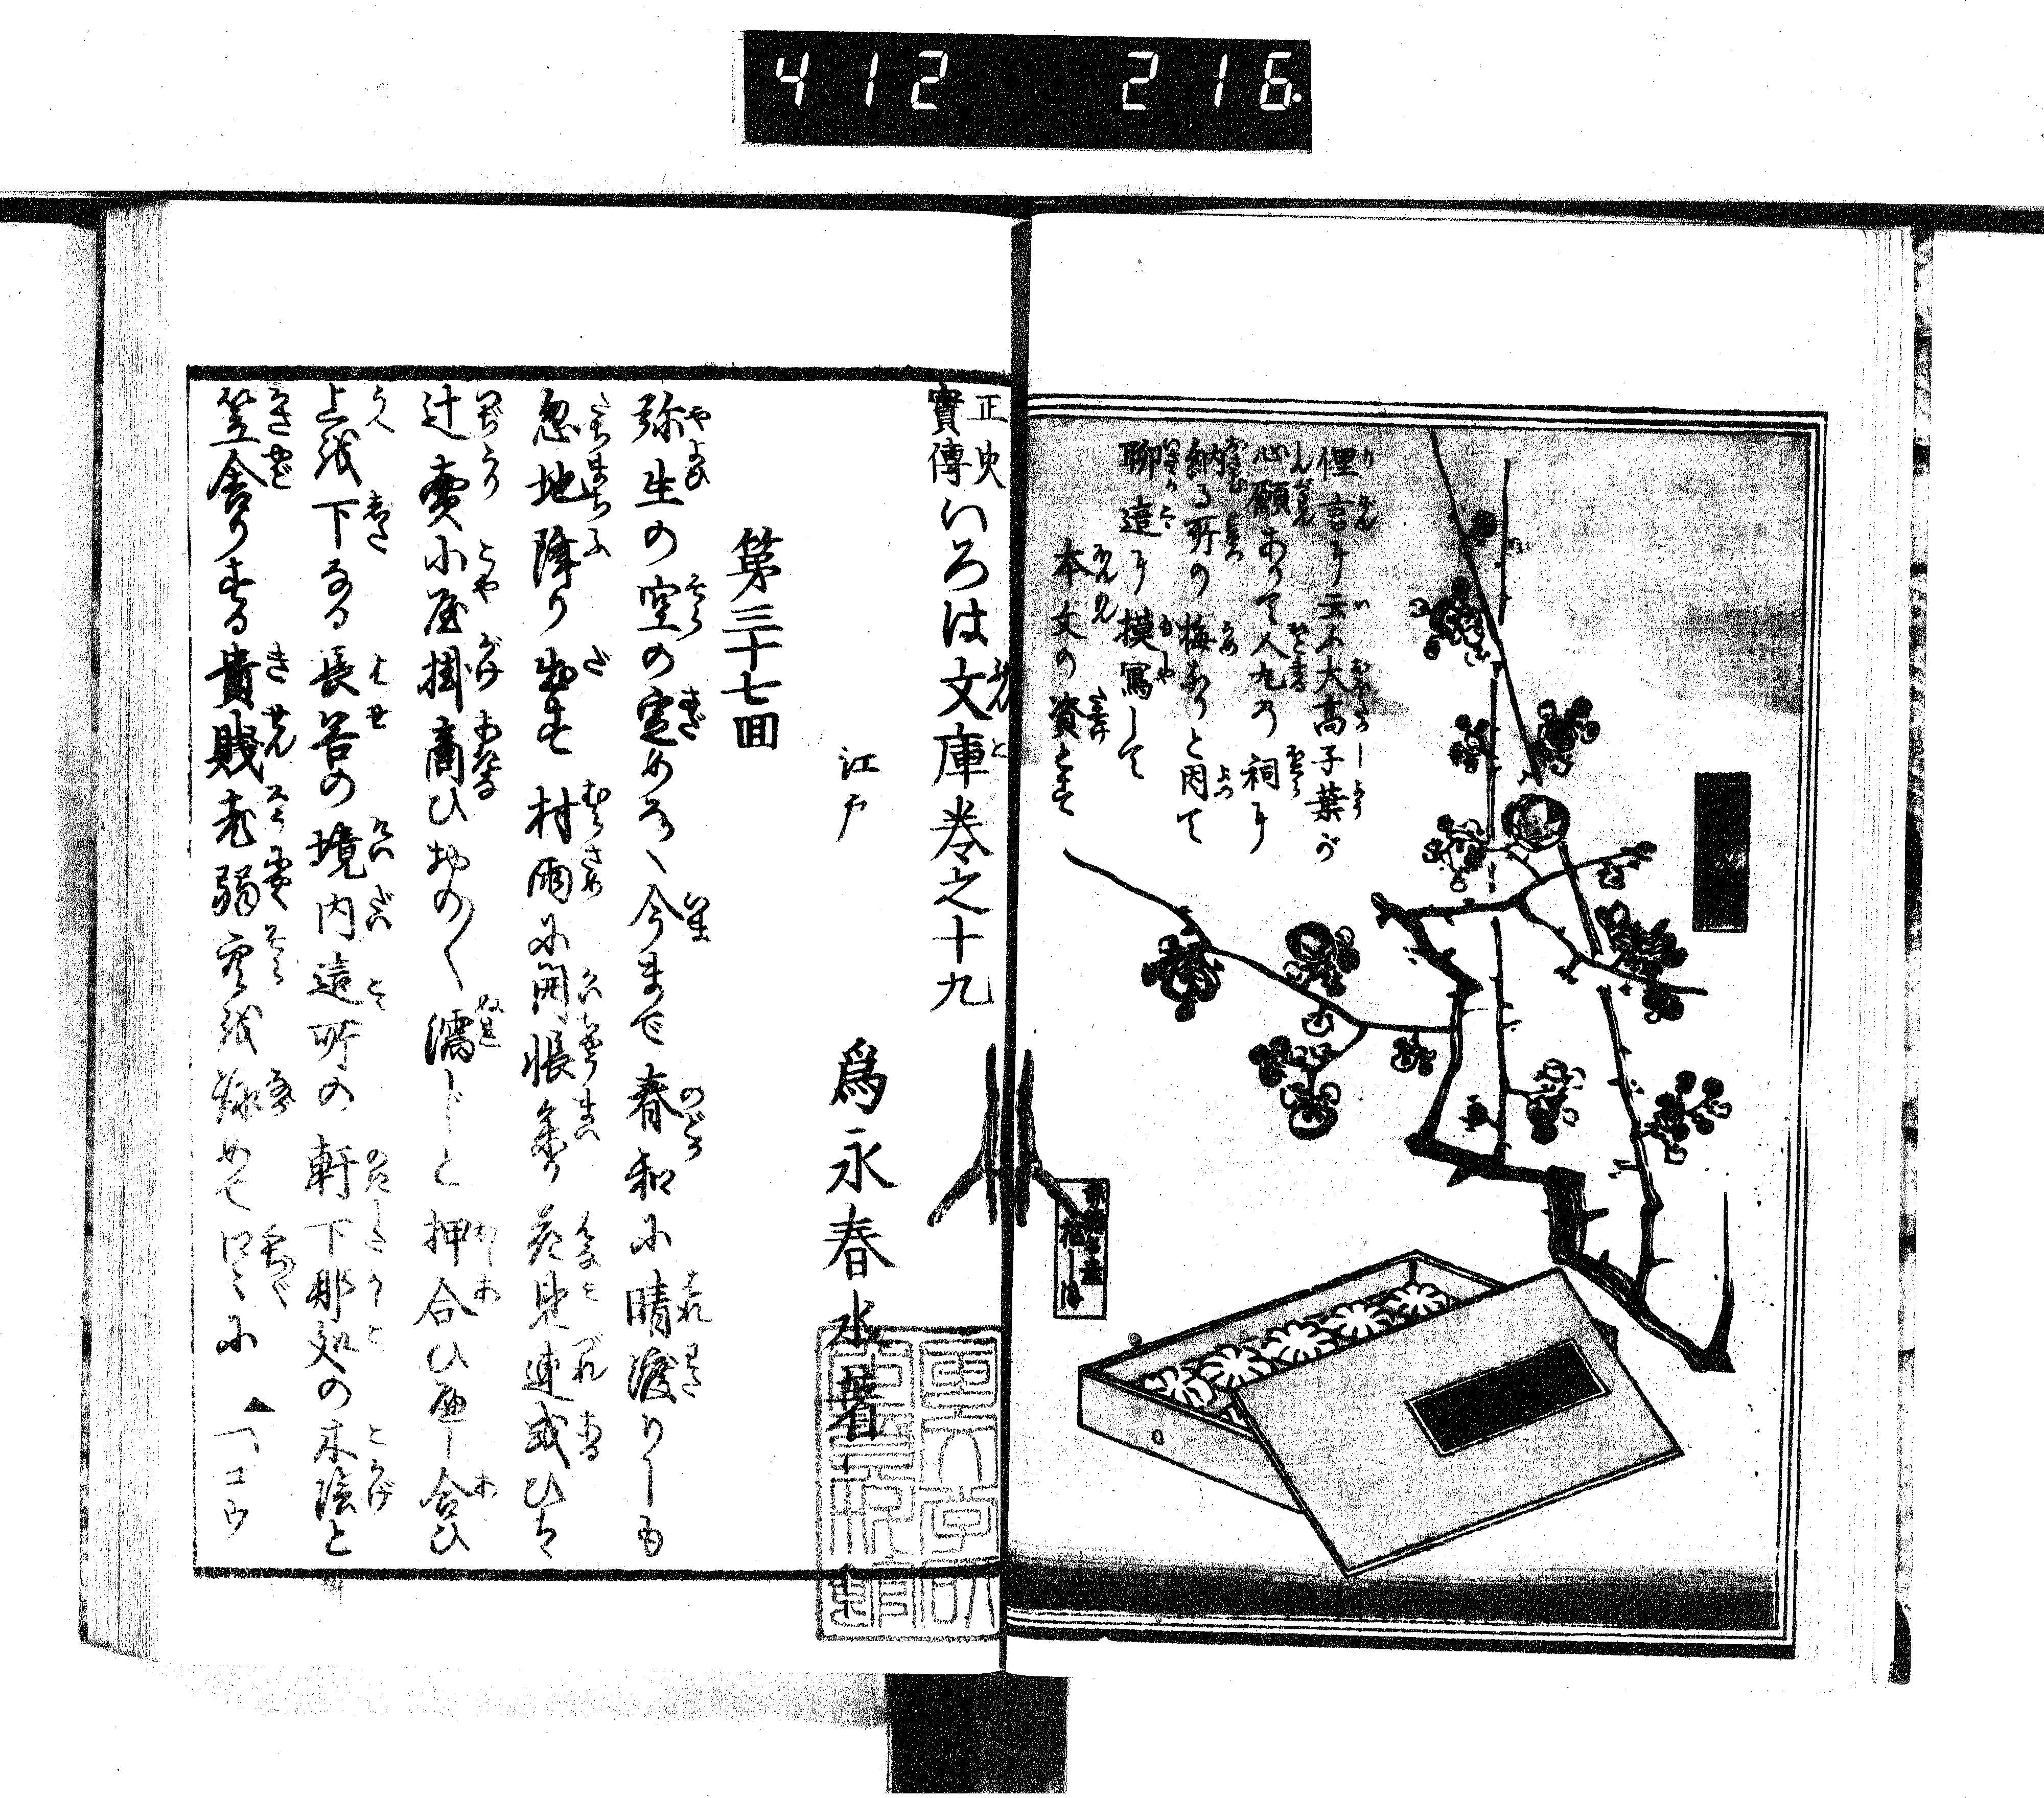 412 216.
俚言に云ふ大高子葉が
心願ありて人丸の祠に
納る所の梅ありと因て
聊這に摸寫して
本文の資とす
正史
實傳いろは文庫巻之十九
江戸
爲永春水著
第三十七回
弥生の空の定めなく今まで春和に晴渡りしも
忽地降り出す村雨に開帳参り花見連或ひは
辻賣小屋掛商ひおの〳〵濡じと押合ひ合ひ
上を下なる長谷の境内這所の軒下那処の木陰と
笠舎りする貴賤老弱空を詠めて口々に▲「コウ